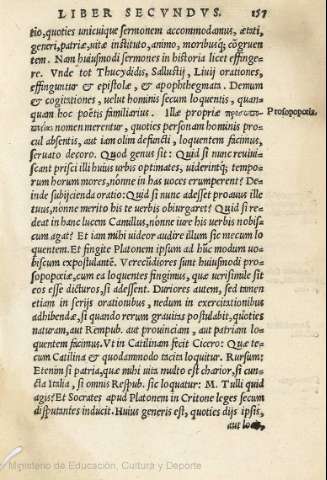 LIBER SECVNDVS. 157
tio, quoties unicuique sermonem accommodamus, ætati,
generi, patriæ, uitæ instituto, animo, moribusq́; cõgruen
tem. Nam huiusmodi sermones in historia licet effinge-
re. Vnde tot Thucydidis, Sallustij, Liuij orationes,
effinguntur & epistolæ, & apophthegmata. Demum
& cogitationes, uelut hominis secum loquentis, quan-
quam hoc poëtis familiarius. Illæ propriæ προσωπο-
Prosopopœia.
ποιΐας nomen merentur, quoties personam hominis pro-
cul absentis, aut iam olim defuncti, loquentem facimus,
seruato decoro. Quod genus sit: Quid si nunc reuiui-
scant prisci illi huius urbis optimates, uiderintq́; tempo-
rum horum mores, nónne in has uoces erumperent? De-
inde subijcienda oratio: Quid si nunc adesset proauus ille
tuus, nónne merito his te uerbis obiurgaret? Quid si re-
deat in hanc lucem Camillus, nónne iure his uerbis nobis-
cum agat? Et iam mihi uideor audire illum sic mecum lo
quentem. Et fingite Platonem ipsum ad hũc modum uo-
biscum expostulantẽ. Verecũdiores sunt huiusmodi pro-
sopopœiæ, cum ea loquentes fingimus, quæ uerisimile sit
eos esse dicturos, si adessent. Duriores autem, sed tamen
etiam in serijs orationibus, nedum in exercitationibus
adhibendæ, si quando rerum grauitas postulabit, quoties
naturam, aut Rempub. aut prouinciam, aut patriam lo-
quentem facimus. Vt in Catilinam fecit Cicero: Quæ te-
cum Catilina & quodammodo tacita loquitur. Rursum:
Etenim si patria, quæ mihi uita multo est charior, si cun-
cta Italia, si omnis Respub. sic loquatur: M. Tulli quid
agis? Et Socrates apud Platonem in Critone leges secum
disputantes inducit. Huius generis est, quoties dijs ipsis,
aut
Ministerio de Educación, Cultura y Deporte